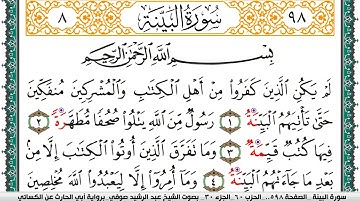 ٩٨ سُورَةُ الْبَيِّنَةِ ٨
بِسْمِ اللَّهِ الرَّحْمَٰنِ الرَّحِيمِ
لَمْ يَكُنِ الَّذِينَ كَفَرُوا مِنْ أَهْلِ الْكِتَٰبِ وَالْمُشْرِكِينَ مُنفَكِّينَ
حَتَّىٰ تَأْتِيَهُمُ الْبَيِّنَةُ ١ رَسُولٌ مِّنَ اللَّهِ يَتْلُوا صُحُفًا مُّطَهَّرَةً ٢
فِيهَا كُتُبٌ قَيِّمَةٌ ٣ وَمَا تَفَرَّقَ الَّذِينَ أُوتُوا الْكِتَٰبَ إِلَّا مِنْ
بَعْدِ مَا جَاءَتْهُمُ الْبَيِّنَةُ ٤ وَمَا أُمِرُوا إِلَّا لِيَعْبُدُوا اللَّهَ مُخْلِصِينَ
سورة البينة . الصفحة ٥٩٨ . الحزب ٦٠ . الجزء ٣٠ . وبصوت الشيخ عبد الرشيد صوفي . برواية أبي الحارث عن الكسائي